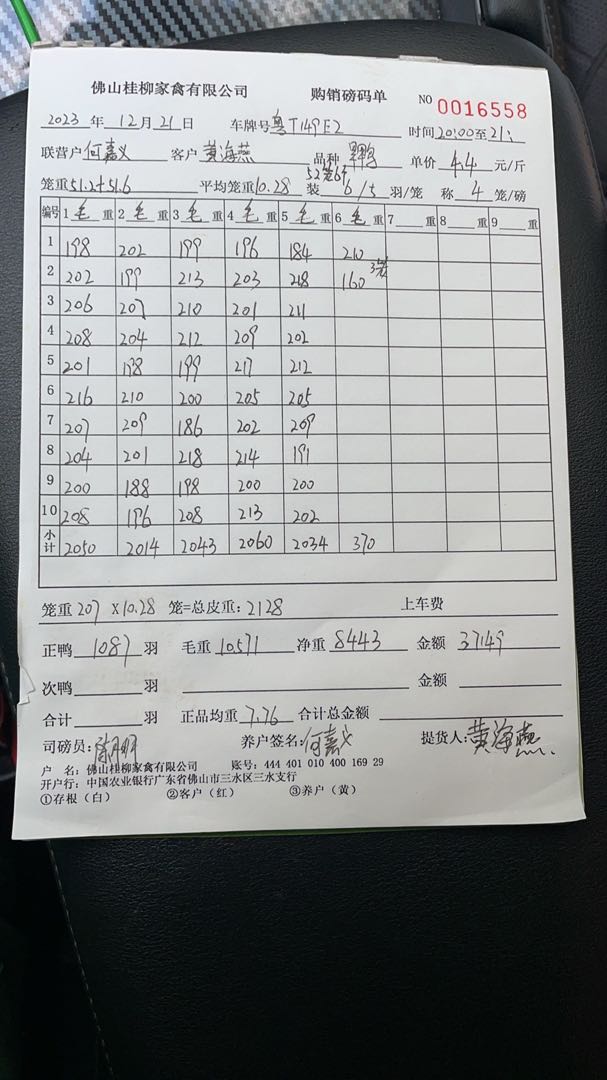 佛山桂柳家禽有限公司 购销磅码单 NO 0016558
2023 年 12 月 21 日 车牌号 粤T149E2 时间 20:00 至 21:
联营户 何嘉义 客户 黄海燕 品种 单价 4.4 元/斤
52笼6
笼重 51.2+51.6 平均笼重 10.28 装 6/5 羽/笼 称 4 笼/磅
编号 1 毛 重 2 毛 重 3 毛 重 4 毛 重 5 毛 重 6 毛 重 7 重 8 重 9 重
1 198 202 199 196 184 210
2 202 199 213 203 218 160 3笼
3 206 207 210 201 211
4 208 204 212 209 202
5 201 198 199 217 212
6 216 210 200 205 205
7 207 209 186 202 209
8 204 201 218 214 191
9 200 188 198 200 200
10 208 196 208 213 202
小计 2050 2014 2043 2060 2034 370
笼重 207 X10.28 笼=总皮重: 2128 上车费
正鸭 1087 羽 毛重 10571 净重 8443 金额 37149
次鸭 羽 金额
合计 羽 正品均重 7.76 合计总金额
司磅员: 养户签名: 何嘉义 提货人: 黄海燕
户 名: 佛山桂柳家禽有限公司 账号: 444 401 010 400 169 29
开户行: 中国农业银行广东省佛山市三水区三水支行
①存根（白） ②客户（红） ③养户（黄）